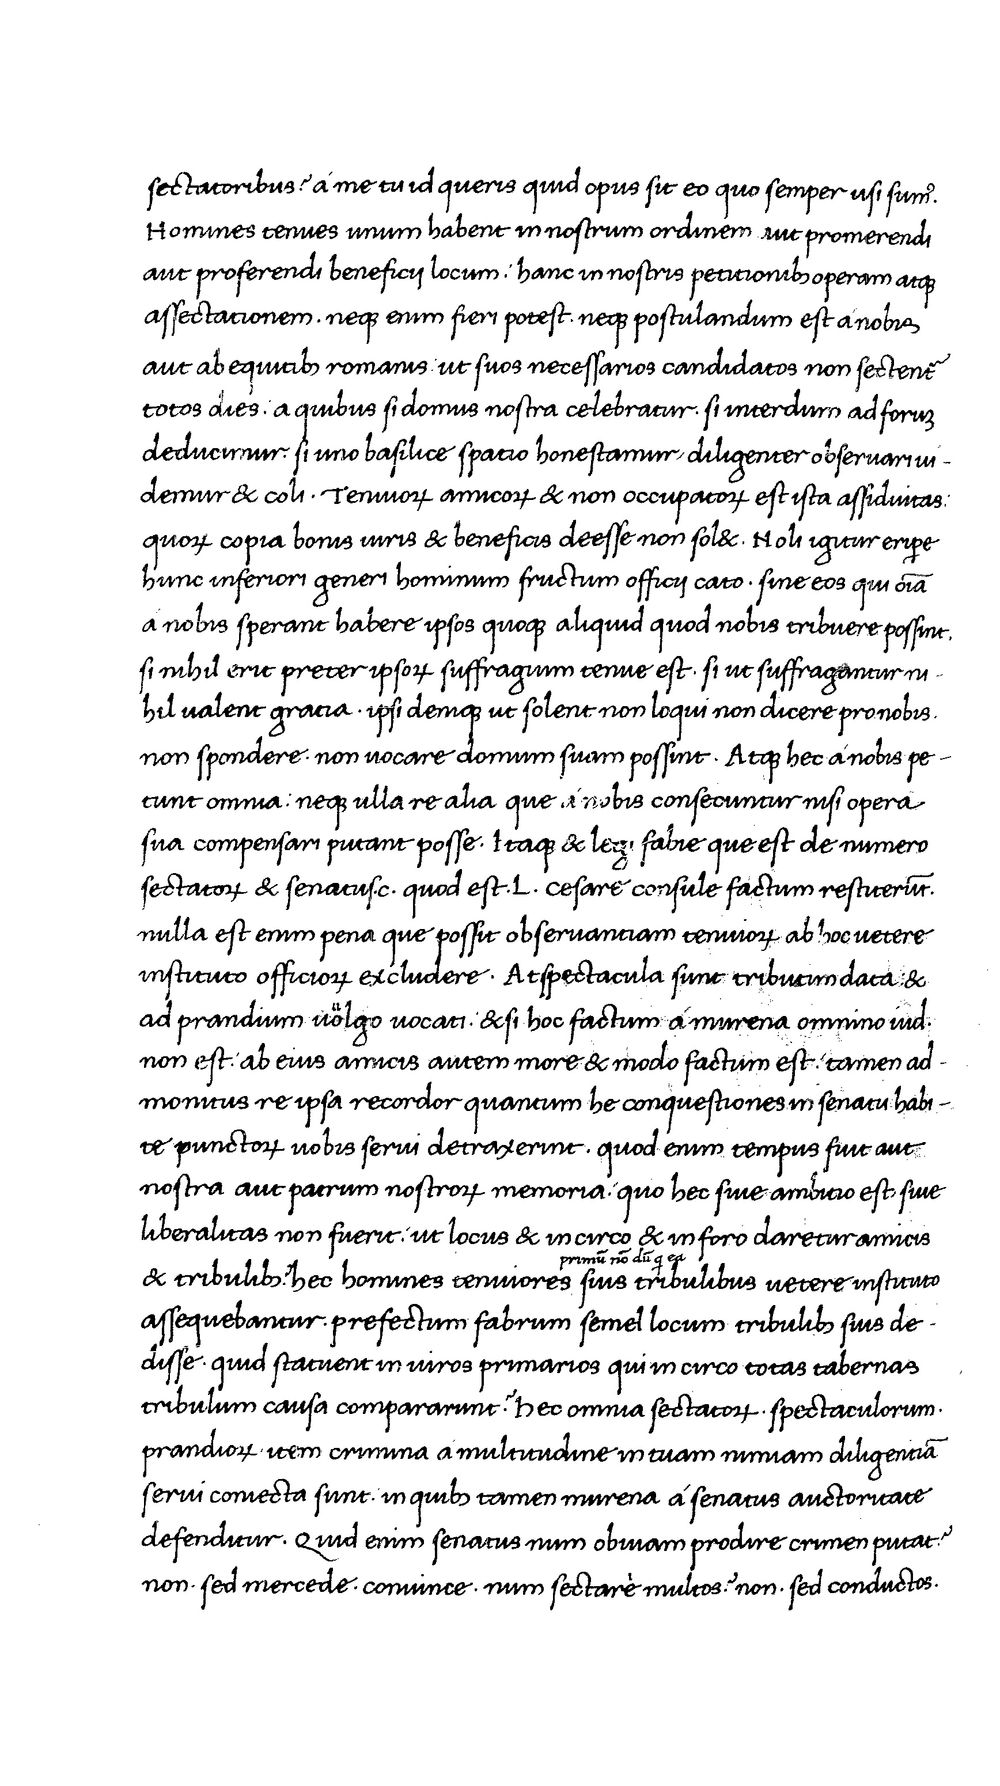 sectatoribus? á me tu id queris quid opus sit eo quo semper usi sum᷒.
Homines tenues unum habent in nostrum ordinem aut promerendi
aut proferendi beneficij locum: hanc in nostris petitionibꝫ operam atqꝫ
assectationem. neqꝫ enim fieri potest. neqꝫ postulandum est á nobis
aut ab equitibꝫ romanis: ut suos necessarios candidatos non sectent᷑
totos dies: a quibus si domus nostra celebratur. si interdum ad foruꝫ
deducimur: si uno basilice spatio honestamur, diligenter obseruari ui-
demur & coli. Tenuioꝝ amicoꝝ & non occupatoꝝ est ista assiduitas:
quoꝝ copia bonis uiris & beneficis deesse non sol&. Noli igitur eriꝑe
hunc inferiori generi hominum fructum officij cato. sine eos qui oi̅a̅
á nobis sperant habere ipsos quoqꝫ aliquid quod nobis tribuere possint.
si nihil erit preter ipsoꝝ suffragium tenue est. si ut suffragantur ni-
hil ualent gratia. ipsi deniqꝫ ut solent non loqui non dicere pro nobis.
non spondere. non uocare domum suam possint. Atqꝫ hec á nobis pe-
tunt omnia: neqꝫ ulla re alia que á nobis consecuntur nisi opera
sua compensari putant posse. Itaqꝫ & legi fabie que est de numero
sectatoꝝ & senatus.c. quod est .L. cesare consule factum restiteru̅t.
nulla est enim pena que possit obseruantiam tenuioꝝ ab hoc uetere
instituto officioꝝ excludere. At spectacula sunt tributim data: &
ad prandium uolgo uocati: & si hoc factum á murena omnino iud.
non est: ab eius amicis autem more & modo factum est: tamen ad-
monitus re ipsa recordor quantum he conquestiones in senatu habi-
te punctoꝝ nobis serui detraxerint. quod enim tempus fuit aut
nostra aut patrum nostroꝝ memoria: quo hec siue ambitio est. siue
liberalitas non fuerit: ut locus & in circo & in foro daretur amicis
primu̅ no̅ du̅ q ea
& tribulibꝫ? hec homines tenuiores suis tribulibus uetere instituto
assequebantur. prefectum fabrum semel locum tribulibꝫ suis de-
disse. quid statuent in uiros primarios qui in circo totas tabernas
tribulum causa compararunt? hec omnia sectatoꝝ. spectaculorum.
prandioꝝ item crimina a multitudine in tuam nimiam diligentia̅
serui coniecta sunt: in quibꝫ tamen murena á senatus auctoritate
defenditur. Quid enim senatus num obuiam prodire crimen putat?
non. sed mercede. conuince. num sectarè multos? non. sed conductos.